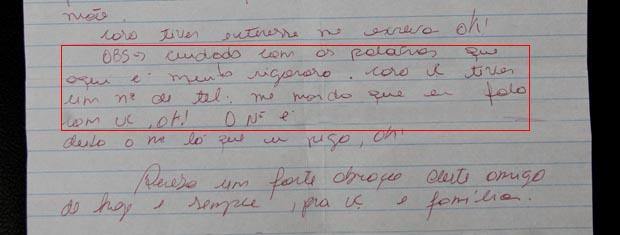 mãe.
Caso tiver enteresse me escreva Oh!
OBS→ cuidado com as palavras que
aqui é muito rigoroso. Caso vc tiver
um nº de tel. me manda que eu falo
com vc, Oh! O Nº é
deste o me lo que eu pego, Oh!
Receba um forte abraço deste amigo
de hoje e sempre, pra vc e família.